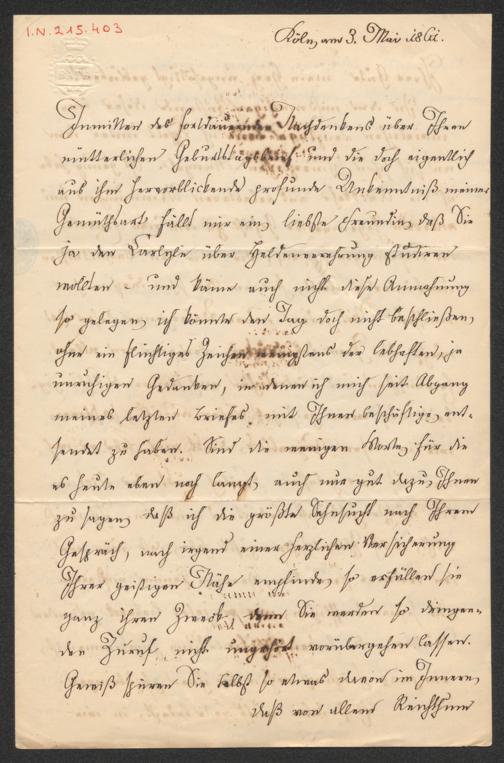 I.N. 215.403
Köln, am 3. Mai 1861.
Inmitten des fortdauernden Nachdenkens über Ihren
mütterlichen Geburtstagsbrief und die doch eigentlich
aus ihm hervorblickende profunde Unkenntniß meiner
Gemüthsart fällt mir ein, liebste Freundin, daß Sie
ja den Carlyle über Heldenverehrung studiren
wollten – und käme auch nicht diese Anmahnung
so gelegen, ich könnte den Tag doch nicht beschließen,
ohne ein flüchtiges Zeichen wenigstens der lebhaften, ja
unruhigen Gedanken, in denen ich mich seit Abgang
meines letzten Briefes mit Ihnen beschäftige, ent-
sendet zu haben. Sind die wenigen Worte, für die
es heute eben noch langt, auch nur gut dazu, Ihnen
zu sagen, daß ich die größte Sehnsucht nach Ihrem
Gespräch, nach irgend einer herzlichen Versicherung
Ihrer geistigen Nähe empfinde, so erfüllen sie
ganz ihren Zweck, denn Sie werden so dringen-
den Zuruf nicht ungehört vorübergehen lassen.
Gewiß spüren Sie selbst so etwas davon im Innern,
daß von allem Reichthum